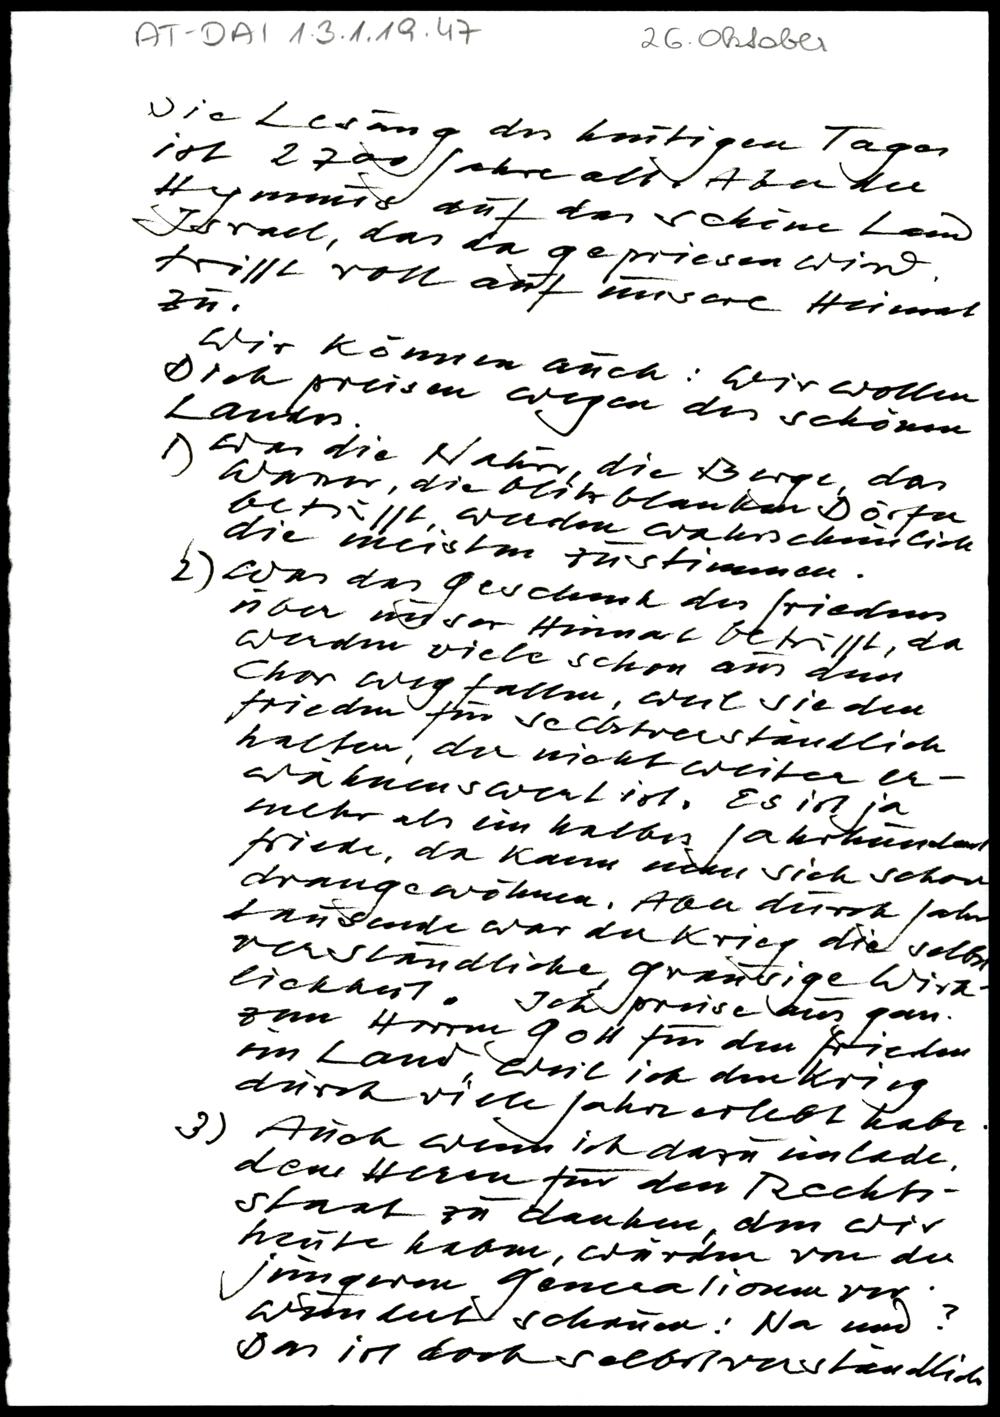 AT-DAI 1.3.1.19.47 26. Oktober
Die Lesung des heutigen Tages
ist 2700 Jahre alt. Aber der
Hymnus auf das schöne Land
Israel, das da gepriesen wird,
trifft voll auf unsere Heimat
zu.
Wir können auch: Wir wollen
Dich preisen wegen des schönen
Landes.
1) Was die Natur, die Berge, das
Wasser, die blitzblanken Dörfer
betrifft, werden wahrscheinlich
die meisten zustimmen.
2) Was das Geschenk des Friedens
über unser Heimat betrifft, da
werden viele schon aus dem
Chor wegfallen, weil sie den
Frieden für selbstverständlich
halten, der nicht weiter er-
wähnenswert ist. Es ist ja
mehr als ein halbes Jahrhundert
Friede, da kann man sich schon
drangewöhnen. Aber durch Jahr
tausende war der Krieg die selbst
verständliche, grausige Wirk-
lichkeit. Ich preise aus gan-
zem Herzen Gott für den Frieden
im Land, weil ich den Krieg
durch viele Jahre erlebt habe.
3) Auch wenn ich dazu einlade,
dem Herrn für den Rechts-
staat zu danken, den wir
heute haben, würden von der
jüngeren Generationen ver-
wundert schauen: Na und?
Das ist doch selbstverständlich